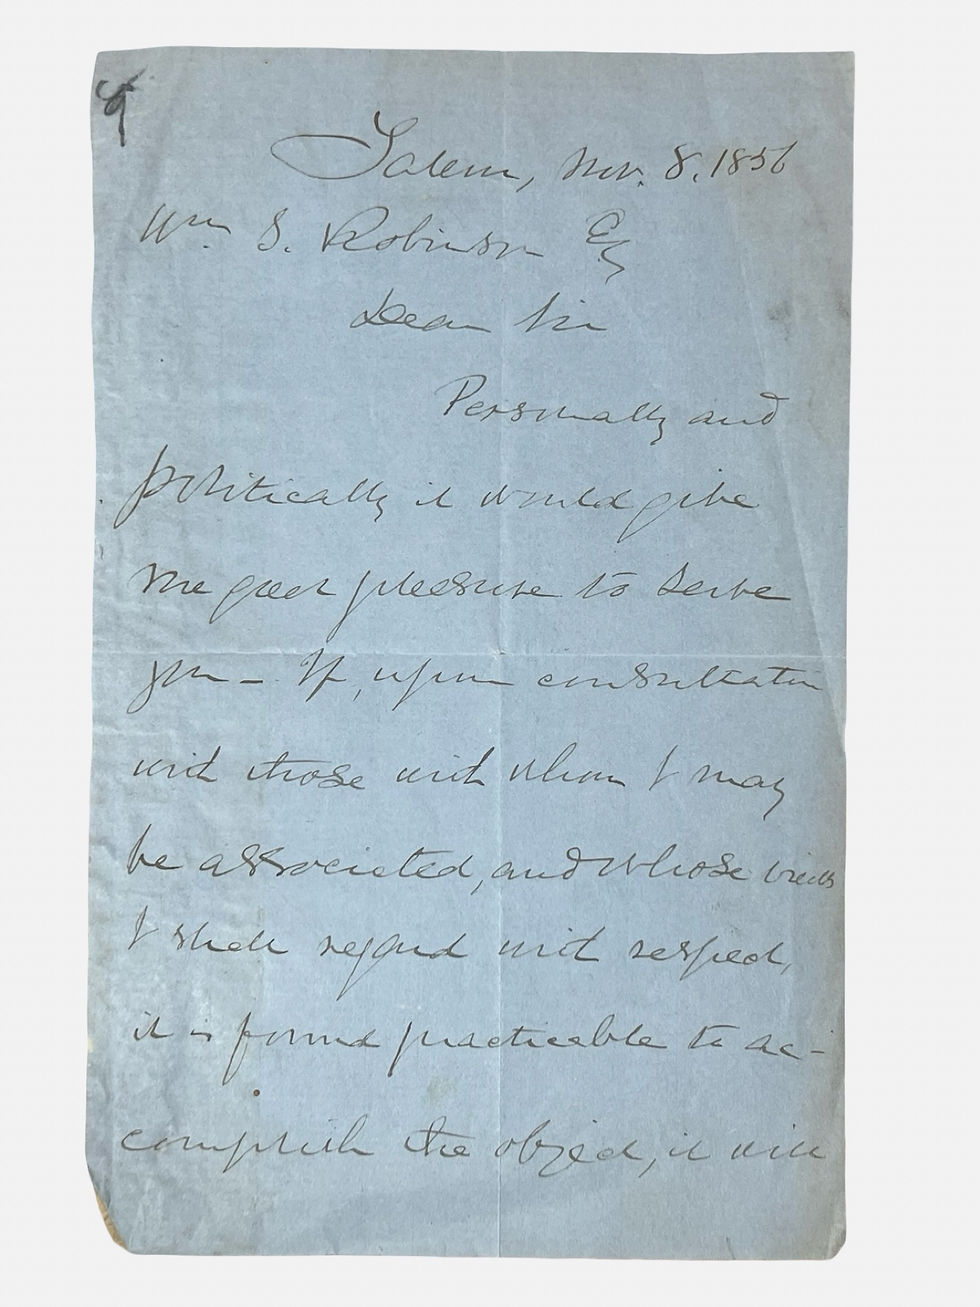 Salem, Nov. 8. 1856
Wm. S. Robinson Esq
Dear Sir
Personally and
politically it would give
me great pleasure to serve
you – If, upon consultation
with those with whom I may
be associated, and whose views
I shall regard with respect,
it is found practicable to ac-
complish the object, it will